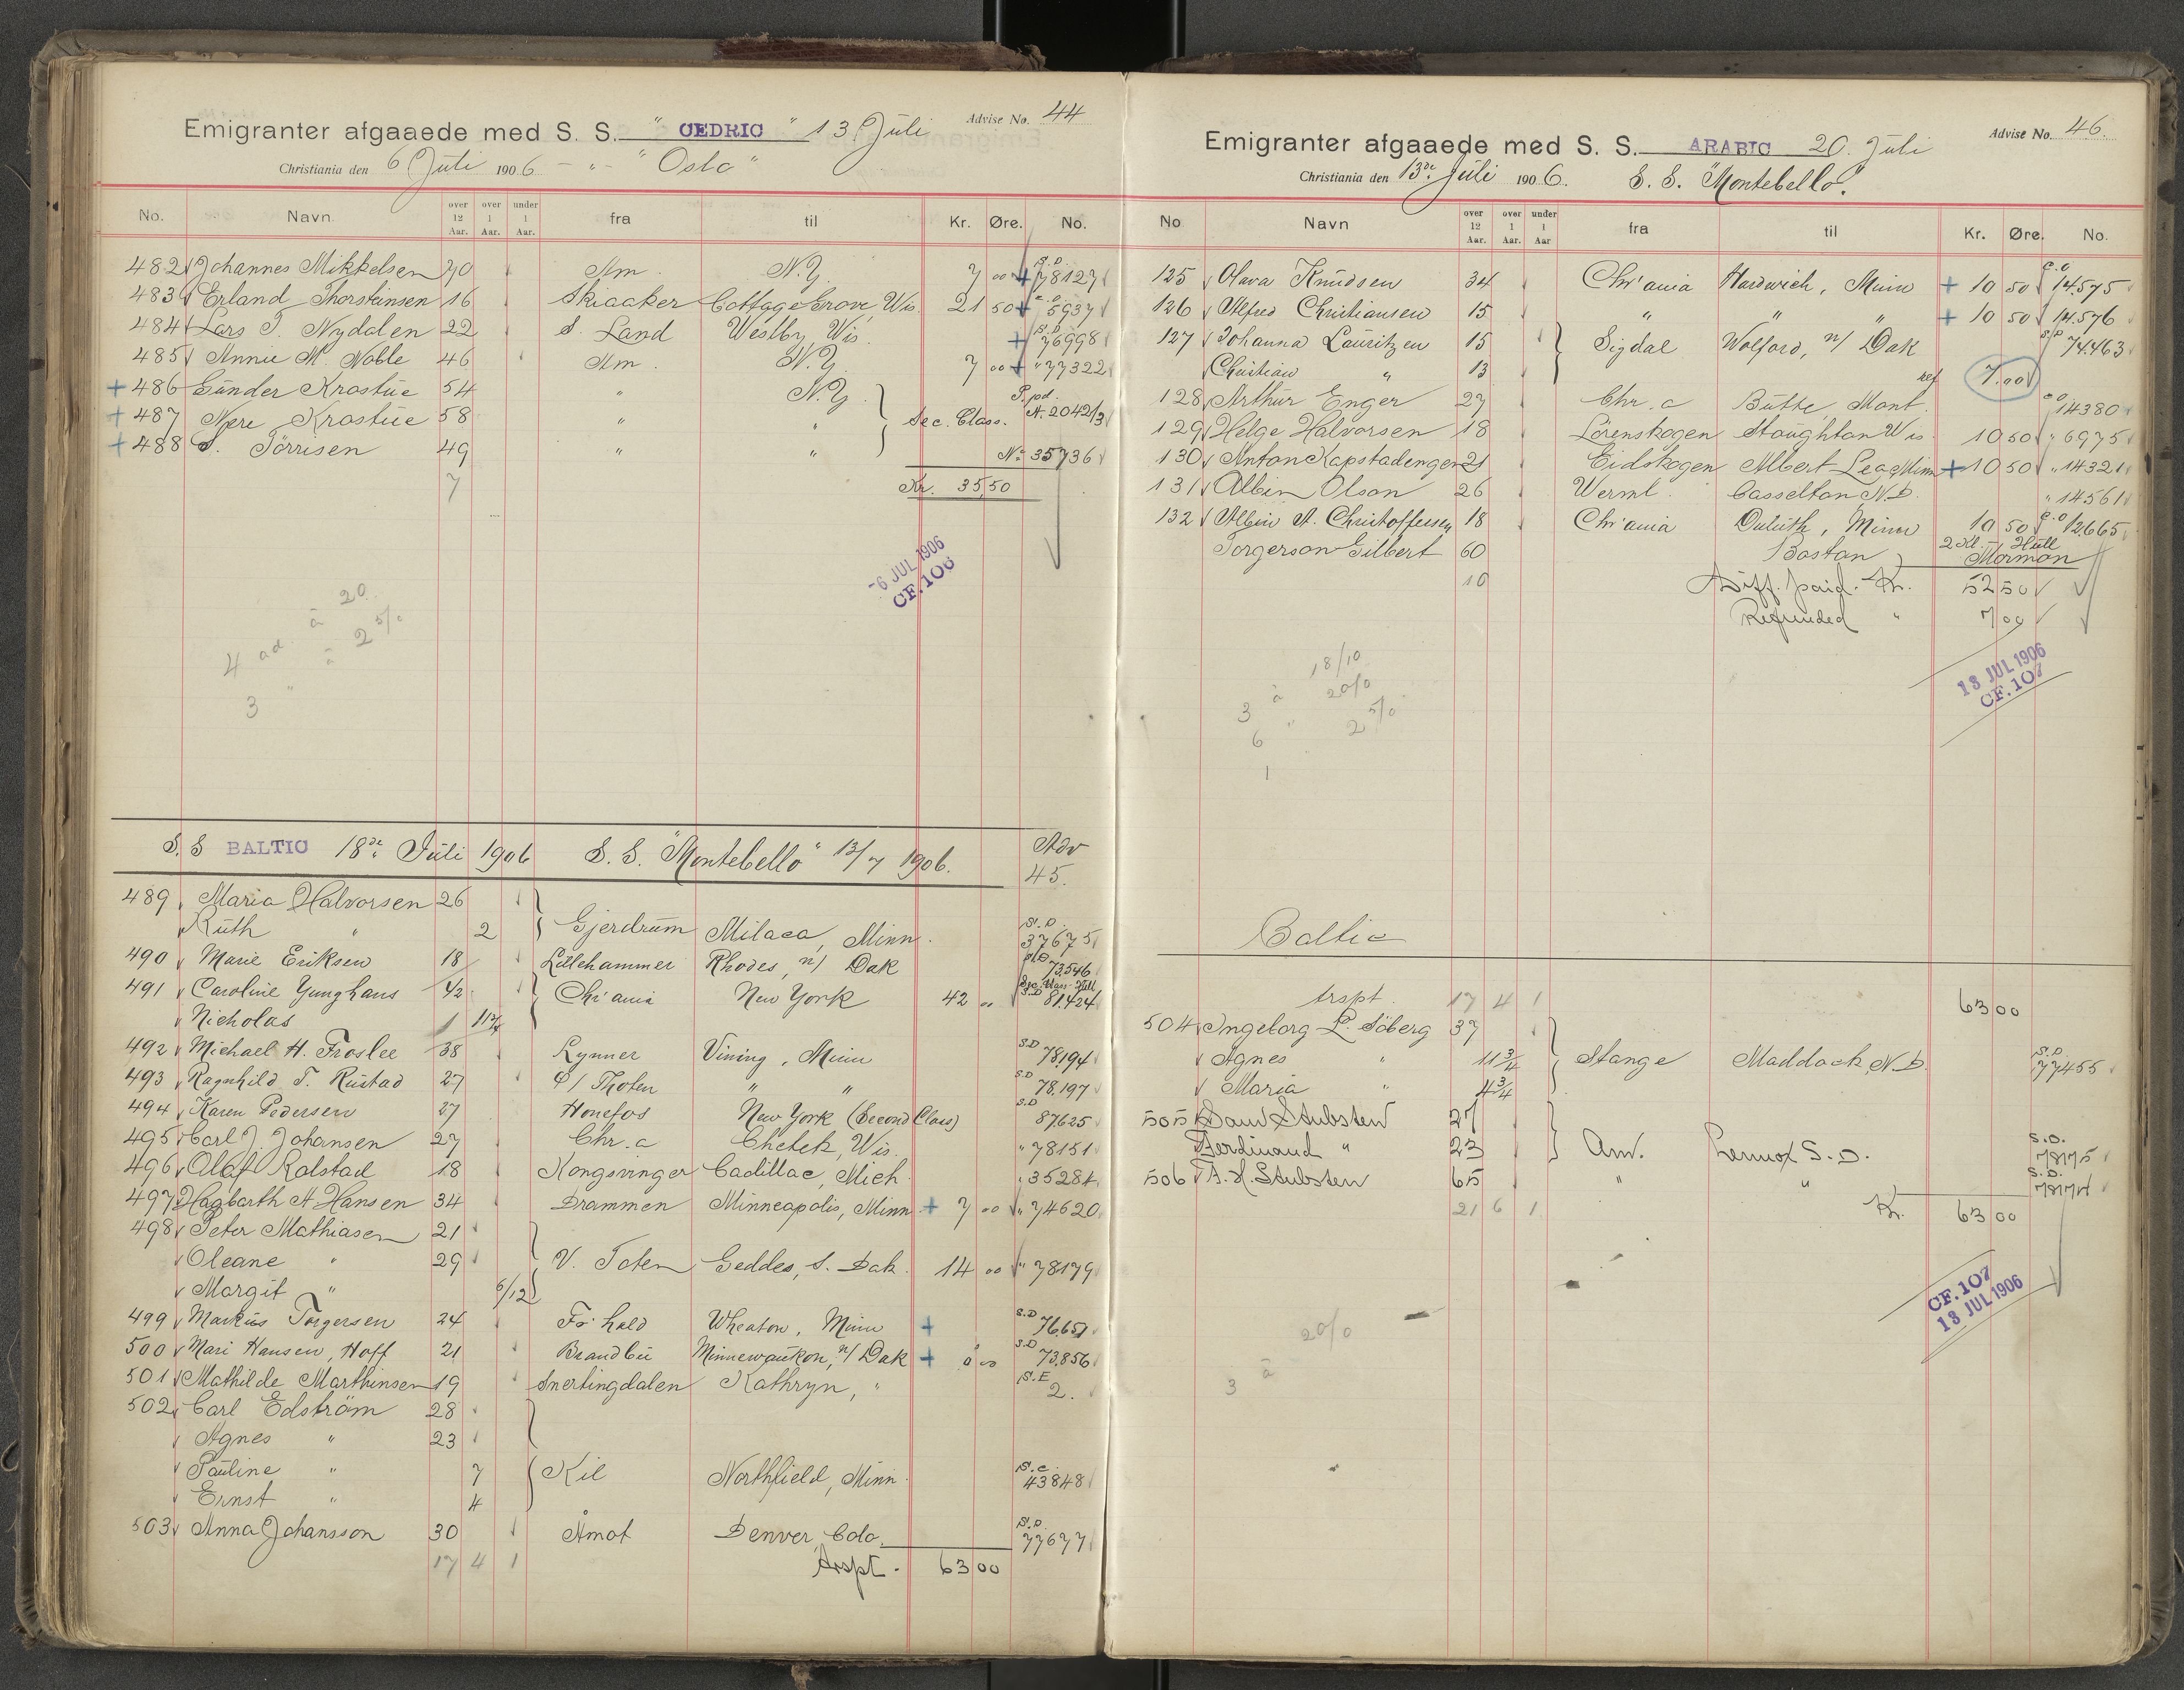 Advise No. 44
Emigranter afgaaede med S. S. " CEDRIC " 13 Juli
Christiania den 6 Juli 1906 - " - "Oslo"
No. Navn over 12 Aar. over 1 Aar. under 1 Aar. fra til Kr. Øre. No.
482 Johannes Mikkelsen 70 Am. N.Y. 7 00 + S.D. 78127
483 Erland Thorsteinsen 16 Skiaaker Cottage Grove, Wis. 21 50 + c.o. 5937
484 Lars T. Nydalen 22 S. Land Westby Wis. + S.D. 76998
485 Annie M. Noble 46 Am. N.Y. 7 00 + " 77322
+ 486 Gunder Krostue 54 " N.Y. P.pd.
+ 487 Nere Krostue 58 " " Sec. Class. A. 2042/3
+ 488 S. Törrisen 49 " " No 35736
7 Kr. 35,50
-6 JUL 1906
CF. 106
20
4 ad. à 2 5/0
3 " à
S.S BALTIC 18de Juli 1906 S.S. "Montebello" 13/7 1906. Adv 45.
489 Maria Halvorsen 26
Ruth " 2 Gjerdrum Milaca, Minn. S.D. 37675
490 Marie Eriksen 18 Lillehammer Rhodes, n/ Dak S.D. 73.546
491 Caroline Junghans 42 Chr'ania New York 42 " Sec. Class Hull S.D 81.424
Nicholas 1 11 3/4
492 Michael H. Froslee 38 Lynner Vining, Minn S.D 78.194
493 Ragnhild T. Rustad 27 Ö/ Thoten " " S.D 78.197
494 Karen Pedersen 27 Honefos New York (Second Class) S.D 87.625
495 Carl J. Johansen 27 Chr.a Chetek, Wis. " 78151
496 Olaf Kolstad 18 Kongsvinger Cadillac, Mich. " 35284
497 Hagbarth A Hansen 34 Drammen Minneapolis, Minn + 7 00 " 74620
498 Peter Mathiasen 21
Oleane " 29 V. Toten Geddes, S. Dak. 14 00 " 78179
Margit " 6/12
499 Markus Torgersen 24 Fr:hald Wheaton, Minn + S.D 76.651
500 Mari Hansen, Hoff 21 Brandbu Minnewaukon, n/ Dak + S.D 73.856
501 Mathilde Marthinsen 19 Snertingdalen Kathryn, " S.E 2.
502 Carl Edström 28
Agnes " 23
Pauline " 7 Kil Northfield, Minn. S.C. 43848
Ernst " 4
503 Anna Johansson 30 Åmot Denver, Colo. S.D. 77677
17 4 1 trspt. 63 00
Advise No. 46.
Emigranter afgaaede med S. S. ARABIC 20. Juli
Christiania den 13de Juli 1906. S. S. "Montebello."
No Navn over 12 Aar. over 1 Aar. under 1 Aar fra til Kr. Øre. No.
125 Olava Knudsen 34 Chr'ania Hardwich, Minn + 10 50 c.o 14.575
126 Alfred Christiansen 15 " " " + 10 50 14.576
127 Johanna Lauritzen 15 Sigdal Wolford, n/ Dak S.D 74.463
Christian " 13 ref 7.00
128 Arthur Enger 27 Chr.a Butte, Mont. c.o 14380
129 Helge Halvorsen 18 Lörenskogen Stoughton Wis. 10 50 " 6975
130 Anton Kapstadengen 21 Eidskogen Albert Lea Minn + 10 50 " 14321
131 Albin Olson 26 Werml. Casselton N.D. " 14561
132 Albin A. Christoffersen 18 Chr'ania Duluth, Minn 10 50 c.o 12.665
Torgerson Gilbert 60 Boston 2 Kl. - Hull Mormon
10 Diff. paid. Kr. 52 50
Refunded " 7 00
13 JUL 1906
CF. 107
18/10
3 à 20/0
6 " 2 5/0
1
Baltic
trspt. 17 4 1 63 00
504 Ingeborg L. Söberg 37
Agnes " 11 3/4 Stange Maddock, N.D. S.D. 77455
Maria " 4 3/4
505 Sam Stubsten 27
Ferdinand " 23 Am. Lennox S.D. S.D. 78175
506 A. H. Stubsten 65 " " S.D. 78174
21 6 1 Kr. 63 00
CF. 107
13 JUL 1906
20/0
3 à